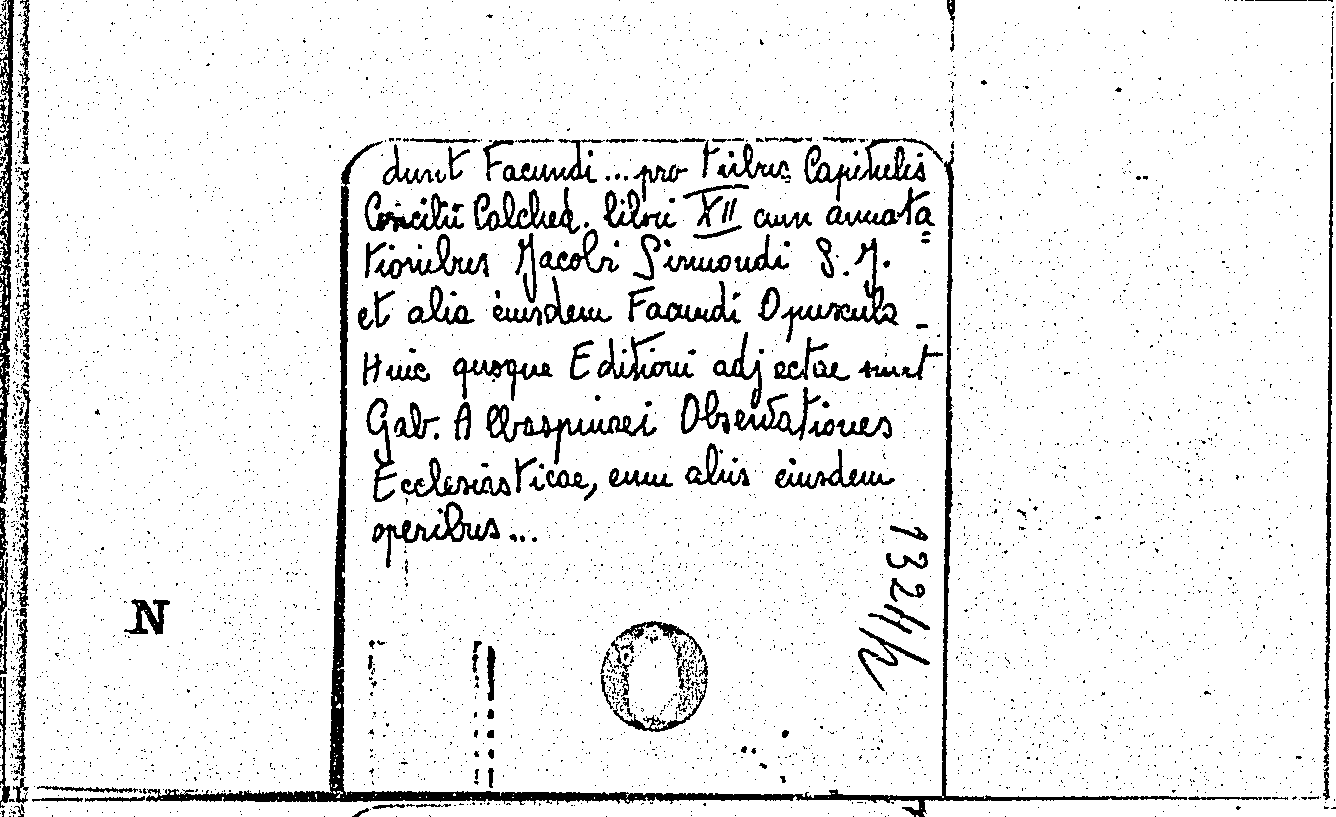 dunt Facundi ... pro tribus Capitulis
Concilii Calched. libri XII cum annota=
tionibus Jacobi Sirmondi S. J.
et alia eiusdem Facundi Opuscula -
Huic quoque Editioni adjectae sunt
Gab. Albaspinaei Observationes
Ecclesiasticae, cum aliis eiusdem
operibus ...
1324/h
N